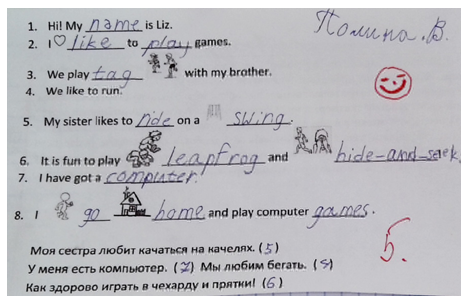 Полина. В.
1. Hi! My name is Liz.
2. I♡ like to play games.
3. We play tag with my brother.
4. We like to run.
5. My sister likes to ride on a swing.
6. It is fun to play leapfrog and hide-and-seek.
7. I have got a computer.
8. I go home and play computer games.
Моя сестра любит качаться на качелях. (5)
У меня есть компьютер. (7) Мы любим бегать. (4)
Как здорово играть в чехарду и прятки! (6)
5.